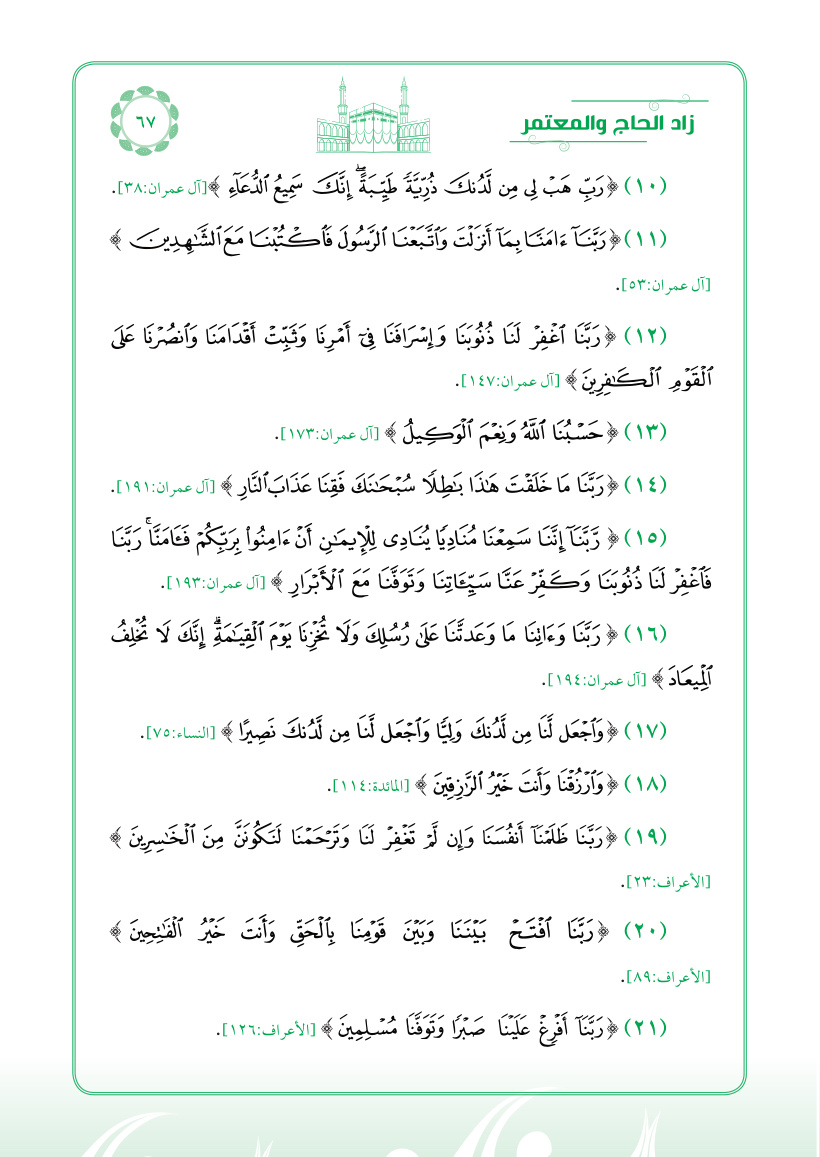 زاد الحاج والمعتمر
٦٧
(١٠) ﴿رَبِّ هَبْ لِى مِن لَّدُنكَ ذُرِّيَّةً طَيِّبَةً ۖ إِنَّكَ سَمِيعُ ٱلدُّعَآءِ ﴾[آل عمران:٣٨].
(١١) ﴿رَبَّنَآ ءَامَنَّا بِمَآ أَنزَلْتَ وَٱتَّبَعْنَا ٱلرَّسُولَ فَٱكْتُبْنَا مَعَ ٱلشَّٰهِدِينَ ﴾
[آل عمران:٥٣].
(١٢) ﴿رَبَّنَا ٱغْفِرْ لَنَا ذُنُوبَنَا وَإِسْرَافَنَا فِىٓ أَمْرِنَا وَثَبِّتْ أَقْدَامَنَا وَٱنصُرْنَا عَلَى
ٱلْقَوْمِ ٱلْكَٰفِرِينَ ﴾ [آل عمران:١٤٧].
(١٣) ﴿حَسْبُنَا ٱللَّهُ وَنِعْمَ ٱلْوَكِيلُ ﴾ [آل عمران:١٧٣].
(١٤) ﴿رَبَّنَا مَا خَلَقْتَ هَٰذَا بَٰطِلًا سُبْحَٰنَكَ فَقِنَا عَذَابَ ٱلنَّارِ ﴾ [آل عمران:١٩١].
(١٥) ﴿ رَّبَّنَآ إِنَّنَا سَمِعْنَا مُنَادِيًا يُنَادِى لِلْإِيمَٰنِ أَنْ ءَامِنُوا۟ بِرَبِّكُمْ فَـَٔامَنَّا ۚ رَبَّنَا
فَٱغْفِرْ لَنَا ذُنُوبَنَا وَكَفِّرْ عَنَّا سَيِّـَٔاتِنَا وَتَوَفَّنَا مَعَ ٱلْأَبْرَارِ ﴾ [آل عمران:١٩٣].
(١٦) ﴿ رَبَّنَا وَءَاتِنَا مَا وَعَدتَّنَا عَلَىٰ رُسُلِكَ وَلَا تُخْزِنَا يَوْمَ ٱلْقِيَٰمَةِ ۗ إِنَّكَ لَا تُخْلِفُ
ٱلْمِيعَادَ ﴾ [آل عمران:١٩٤].
(١٧) ﴿وَٱجْعَل لَّنَا مِن لَّدُنكَ وَلِيًّا وَٱجْعَل لَّنَا مِن لَّدُنكَ نَصِيرًا ﴾ [النساء:٧٥].
(١٨) ﴿وَٱرْزُقْنَا وَأَنتَ خَيْرُ ٱلرَّٰزِقِينَ ﴾ [المائدة:١١٤].
(١٩) ﴿رَبَّنَا ظَلَمْنَآ أَنفُسَنَا وَإِن لَّمْ تَغْفِرْ لَنَا وَتَرْحَمْنَا لَنَكُونَنَّ مِنَ ٱلْخَٰسِرِينَ ﴾
[الأعراف:٢٣].
(٢٠) ﴿رَبَّنَا ٱفْتَحْ بَيْنَنَا وَبَيْنَ قَوْمِنَا بِٱلْحَقِّ وَأَنتَ خَيْرُ ٱلْفَٰتِحِينَ ﴾
[الأعراف:٨٩].
(٢١) ﴿رَبَّنَآ أَفْرِغْ عَلَيْنَا صَبْرًا وَتَوَفَّنَا مُسْلِمِينَ ﴾ [الأعراف:١٢٦].